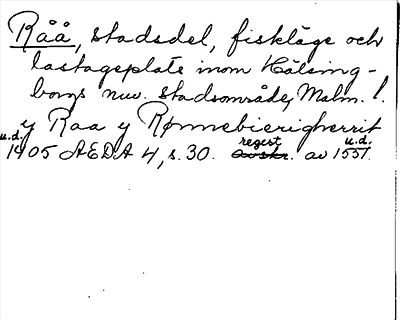 Råå, stadsdel, fiskläge och
lastageplats inom Hälsing-
borgs nuv. stadsområde, Malm. l.
y Raa y Rønnebierigherrit
u.d. 1405 AEDA 4, s. 30. regest av u.d. 1551.